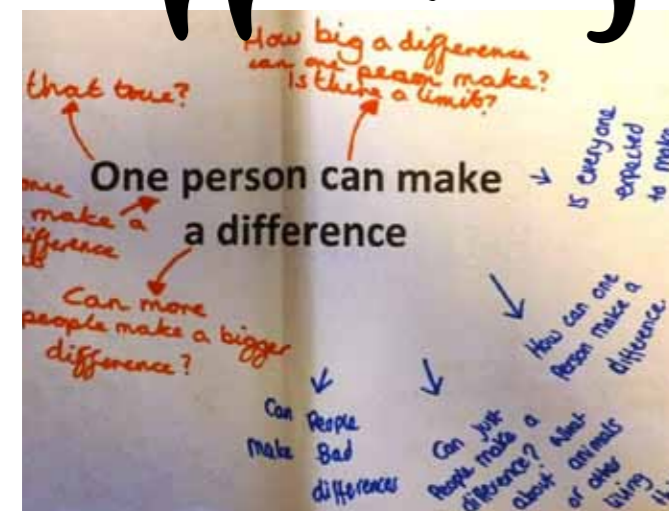 How big a difference
can one person make?
Is there a limit?
that true?
One person can make
a difference
make a
difference
Can more
people make a bigger
difference?
Is everyone
expected
to make
How can one
Person make a
difference
Can People
make Bad
differences
Can Just
People make a
difference? What
about animals
or other
living